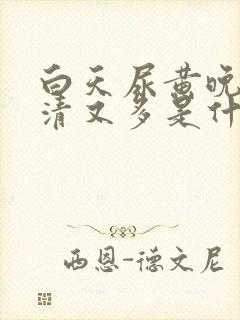 白天尿黄晚
清又多是什
西恩-德文尼